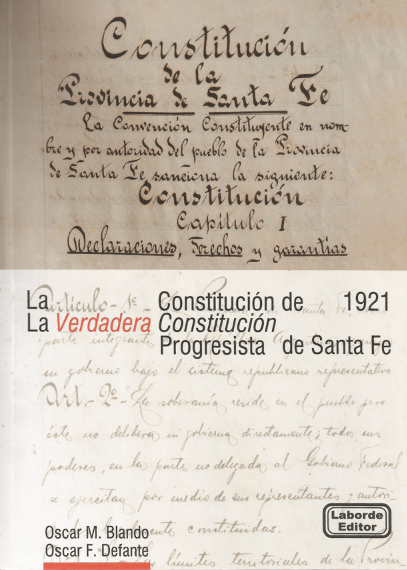 Constitución
de la
Provincia de Santa Fe
La Convención Constituyente en nom-
bre y por autoridad del pueblo de la Provincia
de Santa Fe, sanciona la siguiente:
Constitución
Capítulo I
Declaraciones, Derechos y garantías
La Constitución de 1921
La Verdadera Constitución
Progresista de Santa Fe
Artículo - 1º
parte integrante
su gobierno bajo el sistema republicano representativo
Art. - 2º - La soberanía reside en el pueblo pero
éste no delibera ni gobierna directamente; todos sus
poderes, en la parte no delegada al Gobierno Federal
se ejercitan por medio de sus representantes y autori-
constituidas.
Laborde
Editor
Oscar M. Blando
Oscar F. Defante
límites territoriales de la Provin-